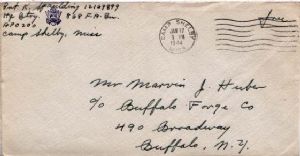 Pvt. R. Spaulding 12127879
Hq. Btry. 868 F.A. Bn.
APO 200
Camp Shelby, Miss
CAMP SHELBY
JAN 17
1 PM
1944
MISS.
Free
Mr Marvin J. Huber
c/o Buffalo Forge Co
490 Broadway
Buffalo, N.Y.